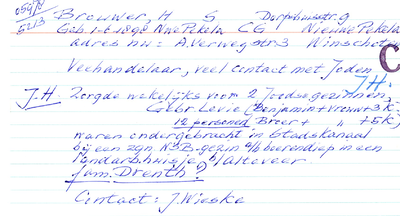 0549/4
5213
Brouwer, H S Dorpshuisstr. 9
Geb. 1-6-1898 Nwe Pekela CG Nieuwe Pekela
adres nu: A. Verwegstr 3 Winschoten
Veehandelaar, veel contact met Joden
C
J.H.
J.H. Zorgde wekelijks voor 2 Joodse gezinnen,
Gebr Levie (Benjamin + vrouw + 3 K.
12 personen Broer + " + 5 K)
waren ondergebracht in Stadskanaal
bij een zgn. NSB-gezin a/h beerendiep in een
landarbeidershuisje b/Alteveer.
fam. Drenth?
Contact: J. Wieske